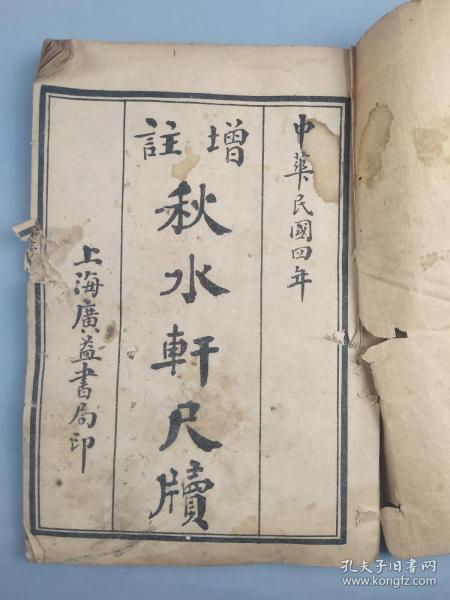 中華民國四年
增註
秋水軒尺牘
上海廣益書局印
孔夫子旧书网
www.kongfz.com